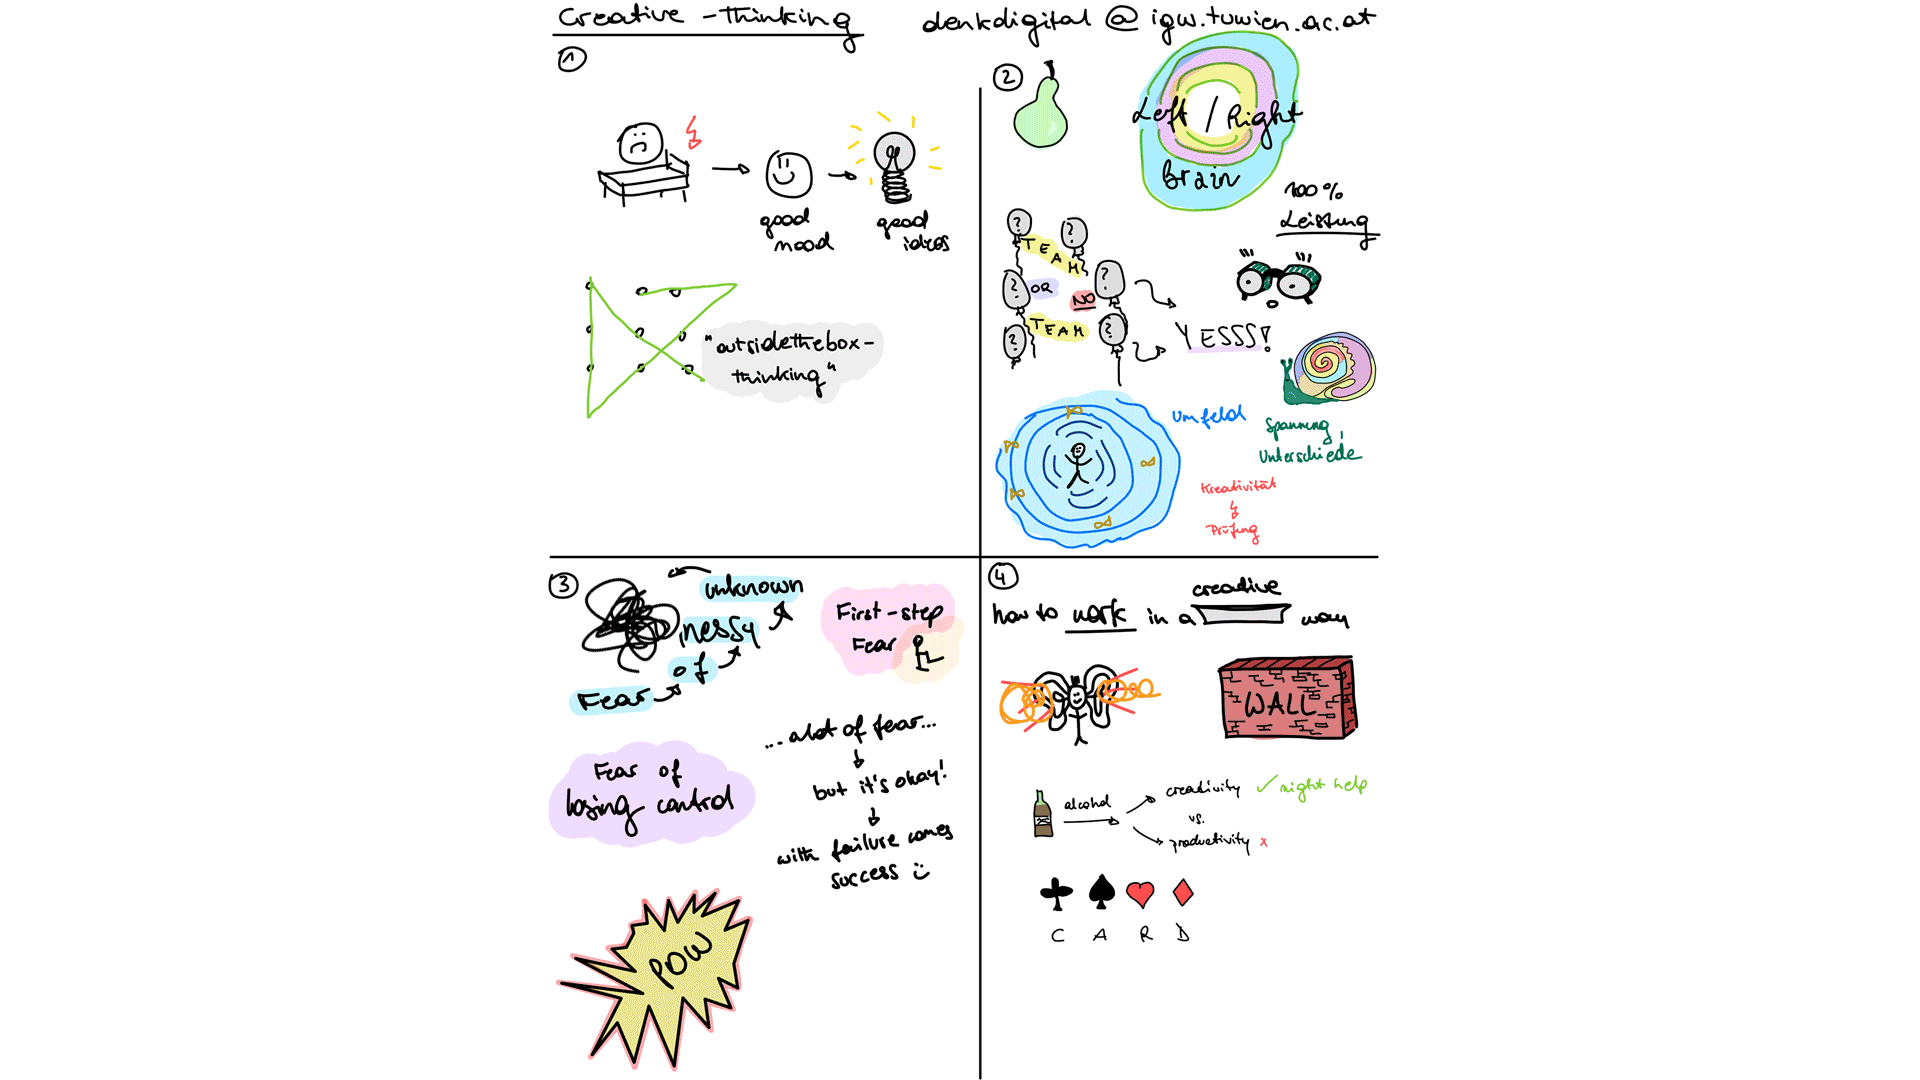 Creative - Thinking
denkdigital @ igw.tuwien.ac.at
1
good
mood
good
ideas
"outsidethebox-
thinking"
2
Left / Right
Brain
100%
Leistung
? ?
TEAM
? ?
OR NO
TEAM
? ?
YESSS!
Umfeld
Spannung,
Unterschiede
Kreativität
Prüfung
3
unknown
messy
of
Fear
First-step
Fear
... a lot of fear...
but it's okay!
with failure comes
success
Fear of
losing control
POW
4
creative
how to work in a way
WALL
alcohol
creativity ✓ might help
vs.
productivity x
C A R D